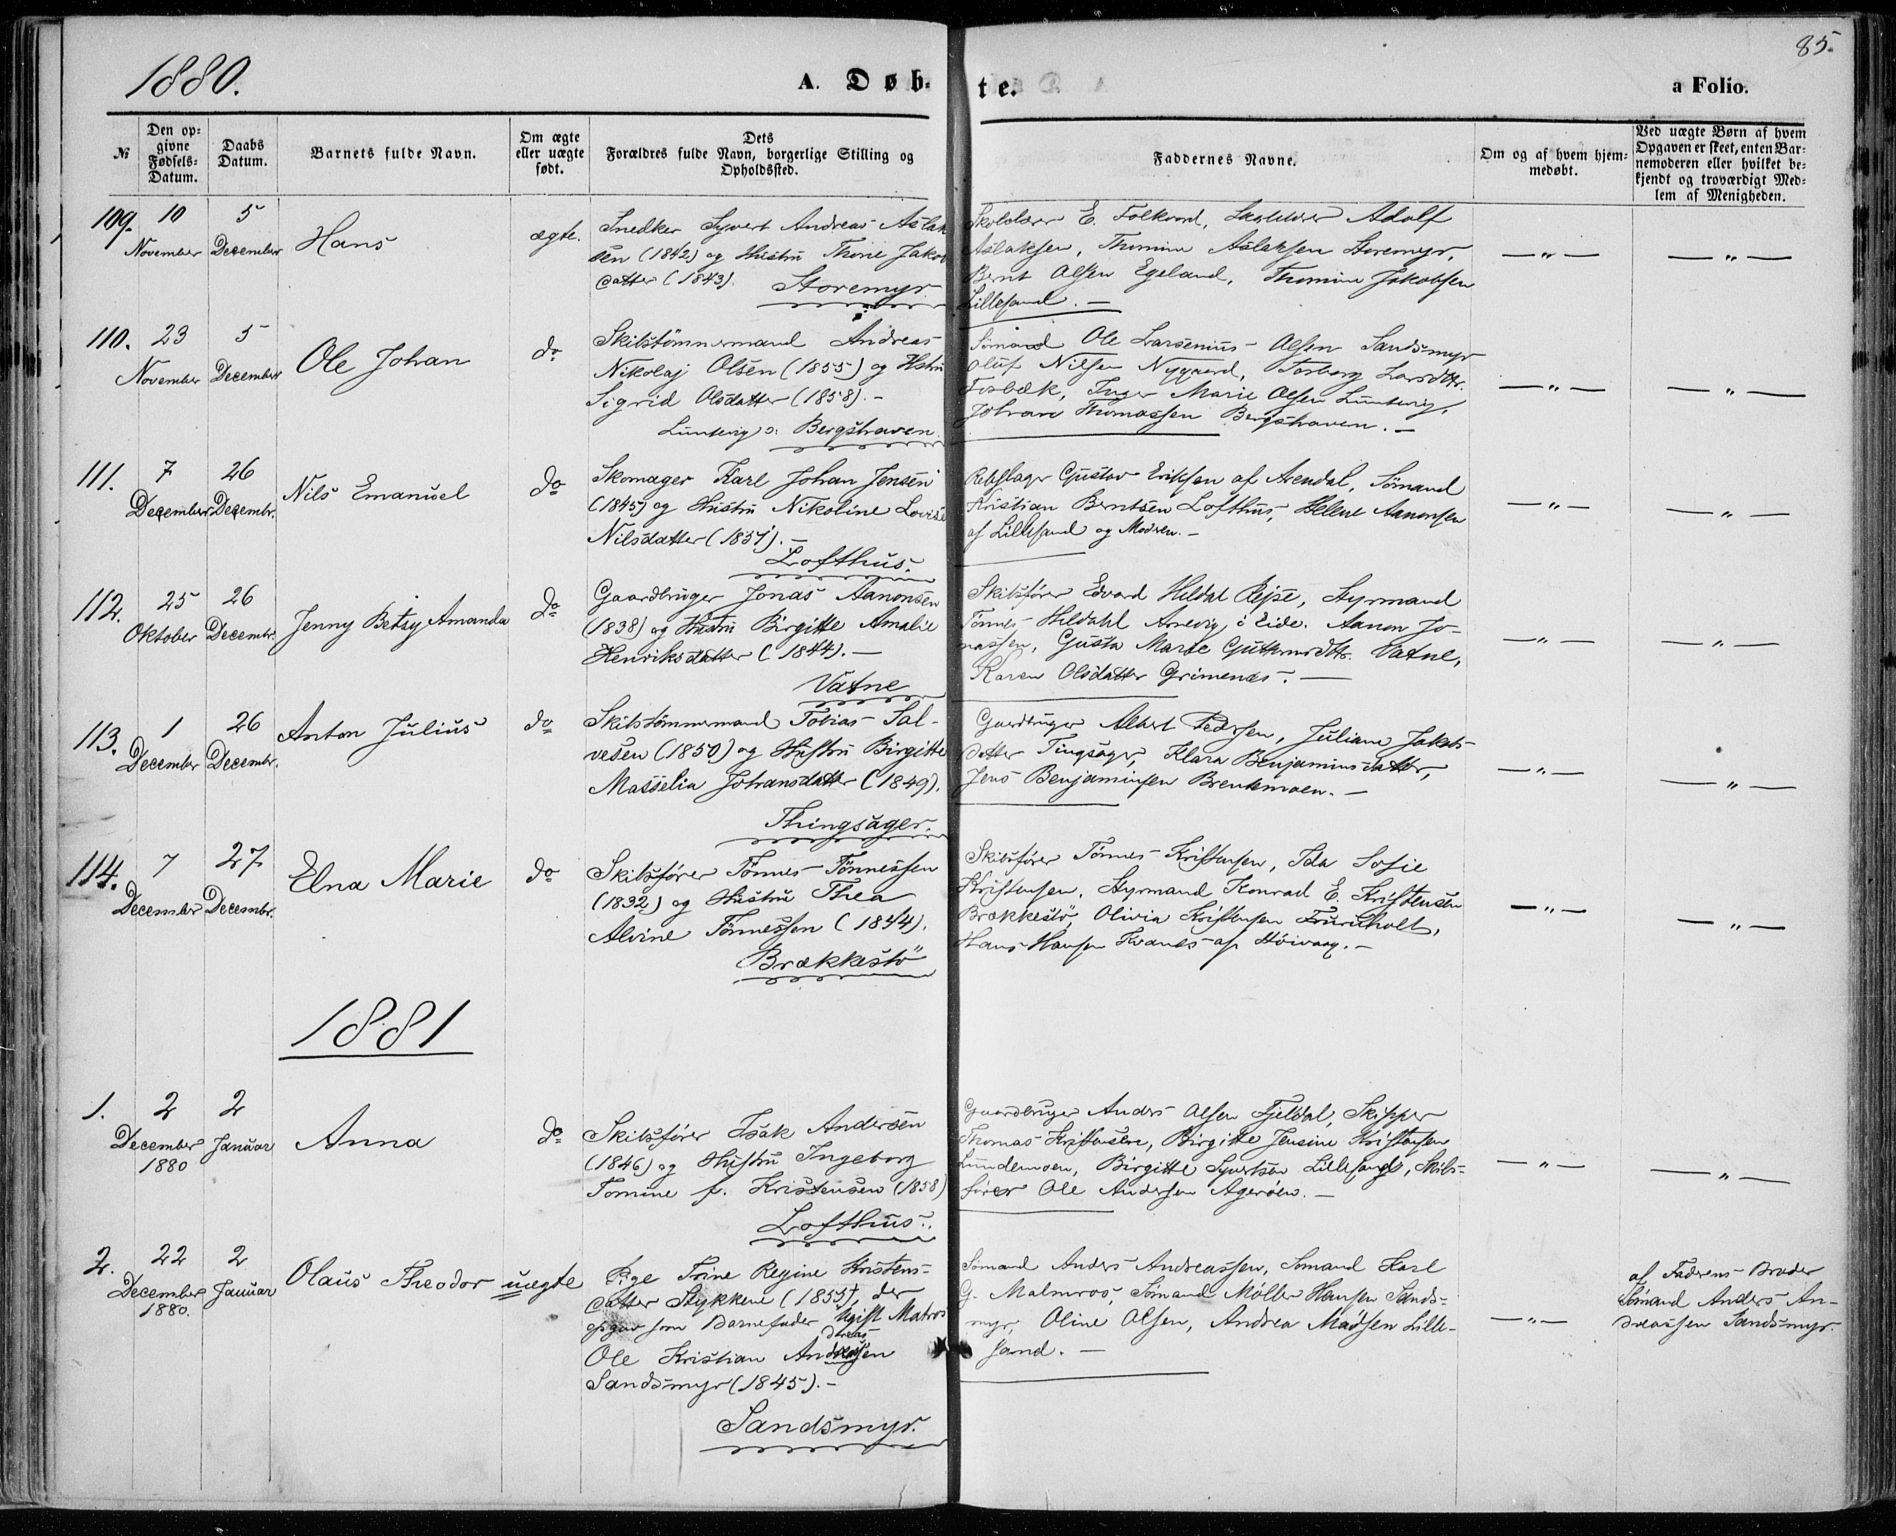 1880.
A. Døb-
te.
a Folio.
85.
№
Den op-
givne
Fødsels-
Datum.
Daabs
Datum.
Barnets fulde Navn.
Om ægte
eller uægte
født.
Dets
Forældres fulde Navn, borgerlige Stilling og
Opholdssted.
Faddernes Navne.
Om og af hvem hjem-
medøbt.
Ved uægte Børn af hvem
Opgaven er skeet, enten Bar-
nemoderen eller hvilket be-
kjendt og troværdigt Med-
lem af Menigheden.
109.
10
November
5
December
Hans
ægte.
Snedker Syvert Andreas Aslak-
sen (1842) og Hustru Thine Jakob
datter (1843).
Storemyr
Skolelærer E. Folkvord, Adolf
Aslaksen, Thomine Aslaksen Storemyr,
Bernt Olsen Egeland, Thomine Jakobsen
Lillesand. —
— „ —
— „ —
110.
23
November
5
December
Ole Johan
do
Skibstømmermand Andreas
Nikolaj Olsen (1855) og Hstru
Sigrid Olsdatter (1858). -
Lundevig o: Bergshaven.
Sømand Ole Larsenius Olsen Sandsmyr
Oluf Nilsen Nygaard, Torborg Larsdttr.
Fosbæk, Inger Marie Olsen Lundevig,
Johan Thomassen Bergshaven. —
— „ —
— „ —
111.
7
December
26
Decembr.
Nils Emanuel
do
Skomager Karl Johan Jensen
(1845) og Hustru Nikoline Lovise
Nilsdatter (1851). —
Lofthus.
Rebslager Gustav Eriksen af Arendal, Sømand
Kristian Berntsen Lofthus, Helene Aanonsen
af Lillesand og Modren. -
— „ —
— „ —
112.
25
Oktober
26
Decembr.
Jenny Betsy Amanda
do
Gaardbruger Jonas Aanonsen
(1838) og Hustru Birgitte Amalie
Henriksdatter (1844). —
Vatne
Skibsfører Edvard Hildal Rejse, Styrmand
Tønnes Hildahl Arnevig i Eide. Aanon Jo-
nassen, Gusta Marie Guthormdtr. Vatne,
Karen Olsdatter Grimenes. —
— „ —
— „ —
113.
1
December
26
Decembr.
Anton Julius
do
Skibstømmermand Tobias Sal-
vesen (1850) og Hustru Birgitte
Masselia Johansdatter (1849).
Thingsager.
Gaardbruger Albert Pedersen, Juliane Jakobs-
datter Tingsager, Klara Benjaminsdatter,
Jens Benjaminsen Brenkmoen. —
— „ —
— „ —
114.
7
December
27
Decembr.
Elna Marie
do
Skibsfører Tønnes Tønnessen
(1832) og Hustru Thea
Alvine Tønnessen (1844).
Brækkestö
Skibsfører Tønnes Kristensen, Ida Sofie
Kristensen, Styrmand Konrad E. Kristensen
Brækkestö, Olivia Kristensen Fruruholt,
Hans Hansen Kvanes af Høivaag. —
— „ —
— „ —
1881
1.
2
December
1880
2
Januar
Anna
do
Skibsfører Isak Andersen
(1846) og Hustru Ingeborg
Tomine f. Kristensen (1858)
Lofthus.
Gaardbruger Anders Olsen Fjeldal, Skipper
Thomas Kristensen, Birgitte Jensine Kristensen
Lundemoen, Birgitte Syvertsen Lillesand, Skibs-
fører Ole Andersen Agerøen. —
— „ —
— „ —
2.
22
December
1880.
2
Januar
Olaus Theodor
uægte
Pige Trine Regine Kristens-
datter Stykkene (1855), der
opgav som Barnefader Ugift Matros
Ole Kristian Andreassen
Sandsmyr (1845). —
Sandsmyr.
Sømand Anders Andreassen, Sømand Karl
G. Malmros, Sømand Møller Hansen Sands-
myr, Oline Olsen, Andrea Madsen Lille-
sand. —
— „ —
af Faderens Broder
Sømand Anders An-
dreassen Sandsmyr.